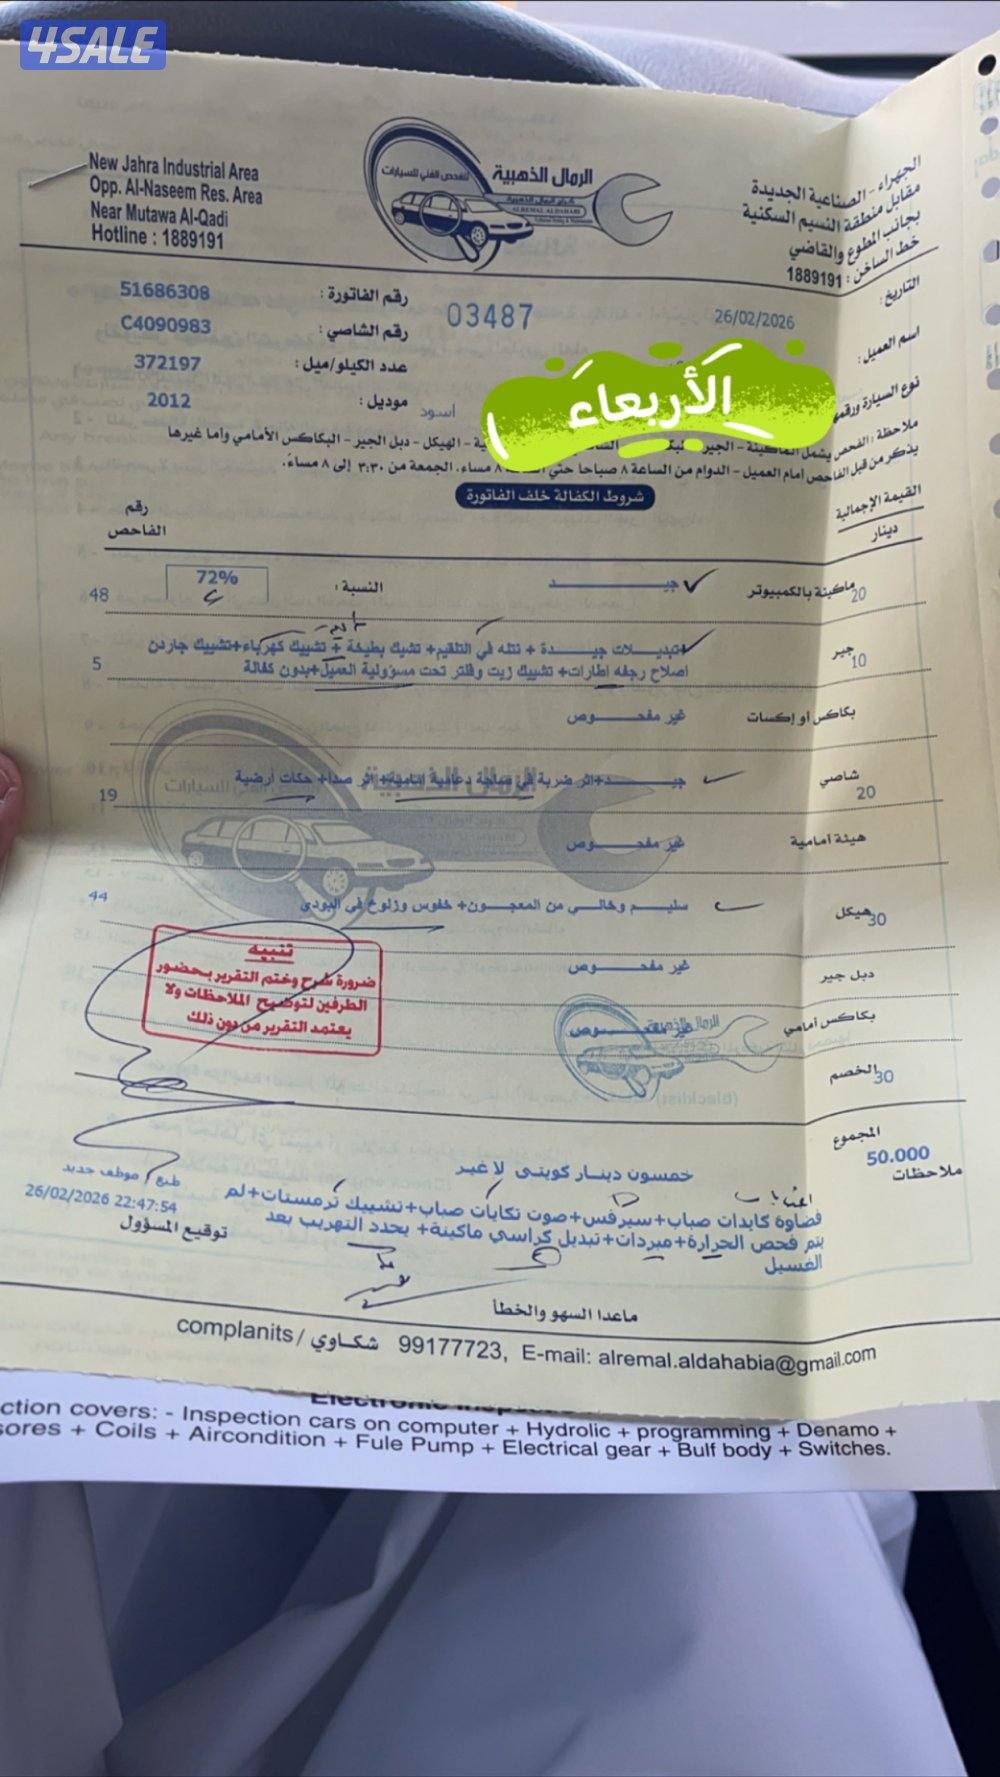 4SALE
New Jahra Industrial Area
Opp. Al-Naseem Res. Area
Near Mutawa Al-Qadi
Hotline : 1889191
الرمال الذهبية
للفحص الفني للسيارات
ALREMAL ALDAHABI
الجهراء - الصناعية الجديدة
مقابل منطقة النسيم السكنية
بجانب المطوع والقاضي
خط الساخن : 1889191
رقم الفاتورة : 51686308
03487
التاريخ: 26/02/2026
رقم الشاصي : C4090983
اسم العميل :
عدد الكيلو/ميل : 372197
الأربعاء
موديل : 2012
اسود
نوع السيارة ورقمها
ملاحظة : الفحص يشمل الماكينة - الجير - الهيكل - دبل الجير - البكاكس الأمامي وأما غيرها
يذكر من قبل الفاحص امام العميل - الدوام من الساعة ٨ صباحا حتى الساعة ٨ مساء، الجمعة من ٣:٣٠ إلى ٨ مساءً.
شروط الكفالة خلف الفاتورة
القيمة الإجمالية
دينار
رقم
الفاحص
ماكينة بالكمبيوتر 20 جيـــد النسبة : 72% 48
جير 10 تبديـلات جيـدة + نتله في التلقيم+ تشيك بطيخة + تشييك كهرباء+تشييك جاردن
اصلاح رجفه اطارات+ تشييك زيت وفلتر تحت مسؤولية العميل+بدون كفالة 5
بكاكس أو إكسات غير مفحـــوص
شاصي 20 جيـــد+اثر ضربة في صاجة دعامية امامية+ اثر صدا+ حكات أرضية 19
هيئة أمامية غير مفحـــوص
هيكل 30 سليـم وخالـي من المعجـون+ خفوس وزلوخ في البودي 44
دبل جير غير مفحـــوص
بكاكس أمامي غير مفحـــوص
تنبيه
ضرورة شرح وختم التقرير بحضور
الطرفين لتوضيح الملاحظات ولا
يعتمد التقرير من دون ذلك
الخصم 30
المجموع
50.000
خمسون دينار كويتي لا غير
ملاحظات
فضاوة كايدات صباب+سيرفس+صوت تكايات صباب+تشييك ثرمستات+لم
يتم فحص الحرارة+مبردات+تبديل كراسي ماكينة+ يحدد التهريب بعد
الغسيل
طبع / موظف جديد
26/02/2026 22:47:54
توقيع المسؤول
ماعدا السهو والخطأ
complanits / شكاوي 99177723, E-mail: alremal.aldahabia@gmail.com
ction covers: - Inspection cars on computer + Hydrolic + programming + Denamo +
sores + Coils + Aircondition + Fule Pump + Electrical gear + Bulf body + Switches.